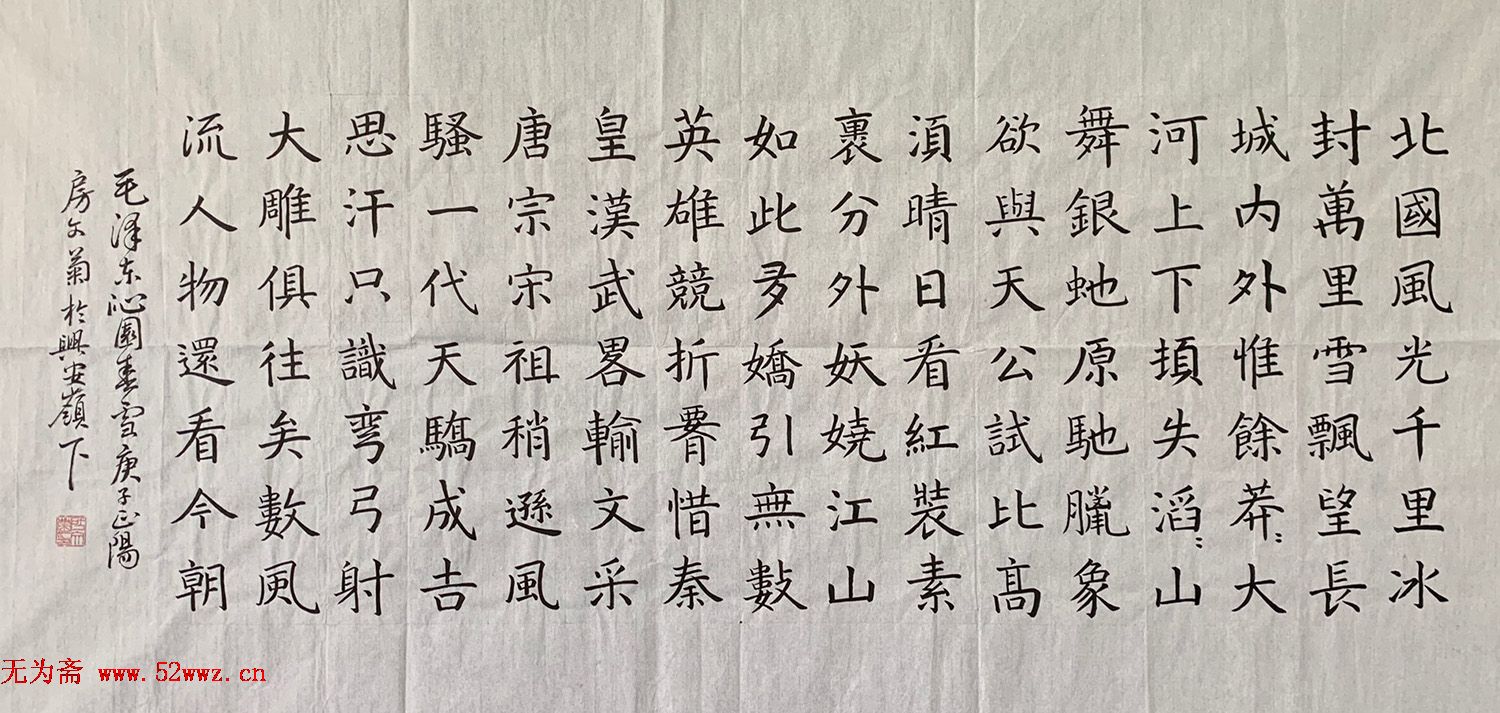 北國風光千里冰
封萬里雪飄望長
城内外惟餘莽〻大
河上下頓失滔〻山
舞銀虵原馳臘象
欲與天公試比髙
湏晴日看紅裝素
裹分外妖嬈江山
如此多嬌引無數
英雄競折腰惜秦
皇漢武畧輸文采
唐宗宋祖稍遜風
騷一代天驕成吉
思汗只識弯弓射
大雕俱往矣數風
流人物還看今朝
毛澤东沁園春雪庚子正陽
房文菊於興安嶺下
无为斋 www.52wwz.cn